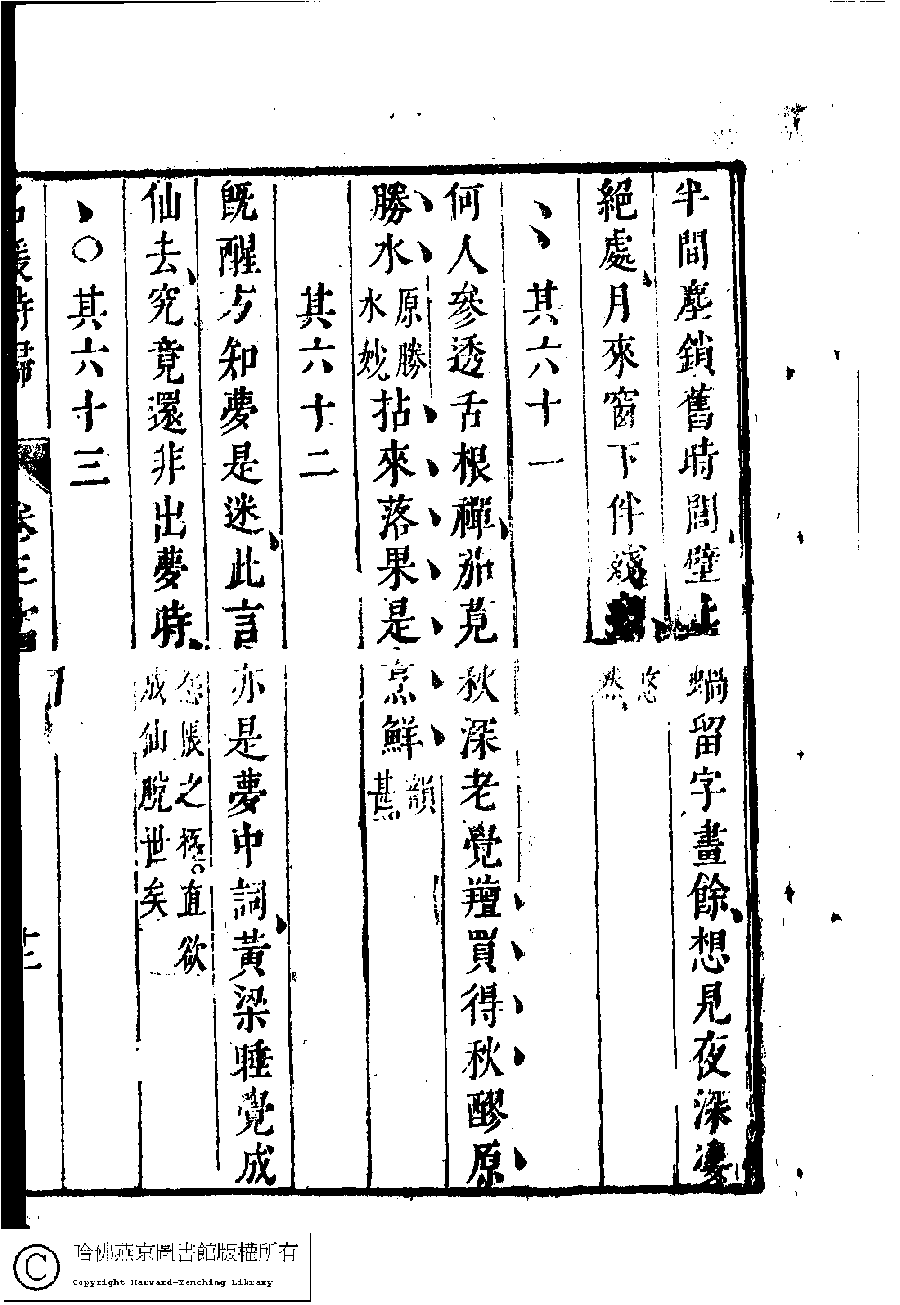 半間塵鎖舊時閭壁上蝸留字畫餘想見夜深凄
絕處月來窗下伴殘 悠然
其六十一
何人參透舌根禪茄莧秋深老覺羶買得秋醪原
勝水原勝水妙拈來落果是烹鮮韻甚
其六十二
旣醒方知夢是迷此言亦是夢中詞黃梁睡覺成
仙去究竟還非出夢時 悵之極直欲成仙脫世矣
〇其六十三
名媛詩歸 卷三 十二
哈佛燕京圖書館版權所有
Copyright Harvard-Yenching Library